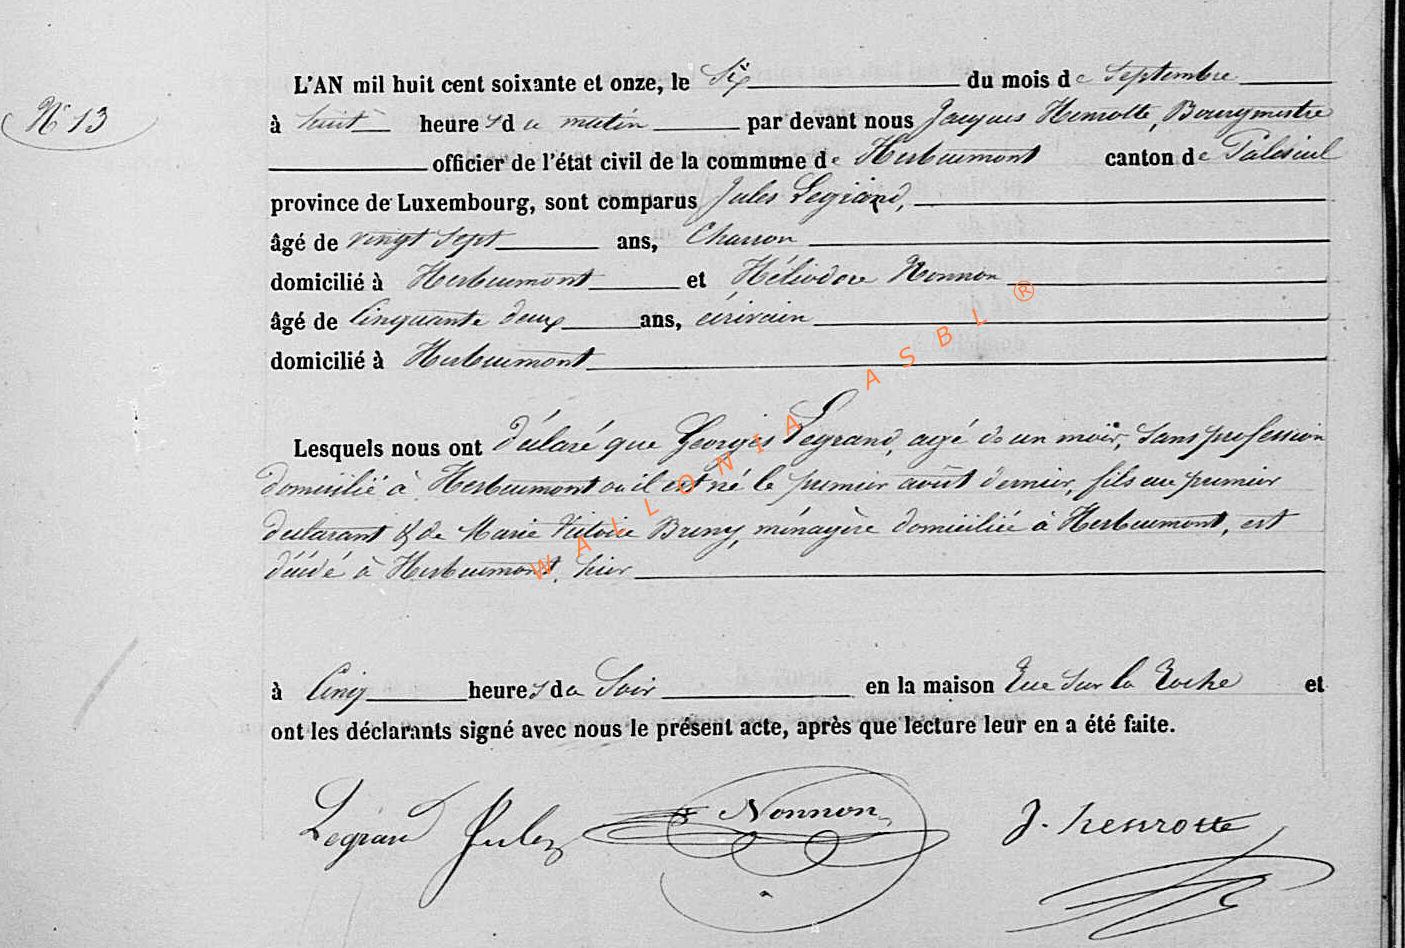 L'AN mil huit cent soixante et onze, le Six du mois de Septembre
N° 13
à huit heures du matin par devant nous Jacques Henrotte, Bourgmestre
officier de l'état civil de la commune de Herbeumont canton de Paliseul
province de Luxembourg, sont comparus Jules Legrand,
âgé de vingt sept ans, Charron
domicilié à Herbeumont et Héliodore Nonnon
âgé de Cinquante deux ans, écrivain
domicilié à Herbeumont
Lesquels nous ont déclaré que Georges Legrand, agé de un mois, Sans profession
domicilié à Herbeumont où il est né le premier août dernier, fils au premier
déclarant & de Marie Victoire Bruny, ménagère domiciliée à Herbeumont, est
décédé à Herbeumont, hier
à Cinq heures du Soir en la maison Rue Sur la Roche et
ont les déclarants signé avec nous le présent acte, après que lecture leur en a été faite.
Legrand Jules Nonnon J. henrotte
WALLONIA ASBL ®